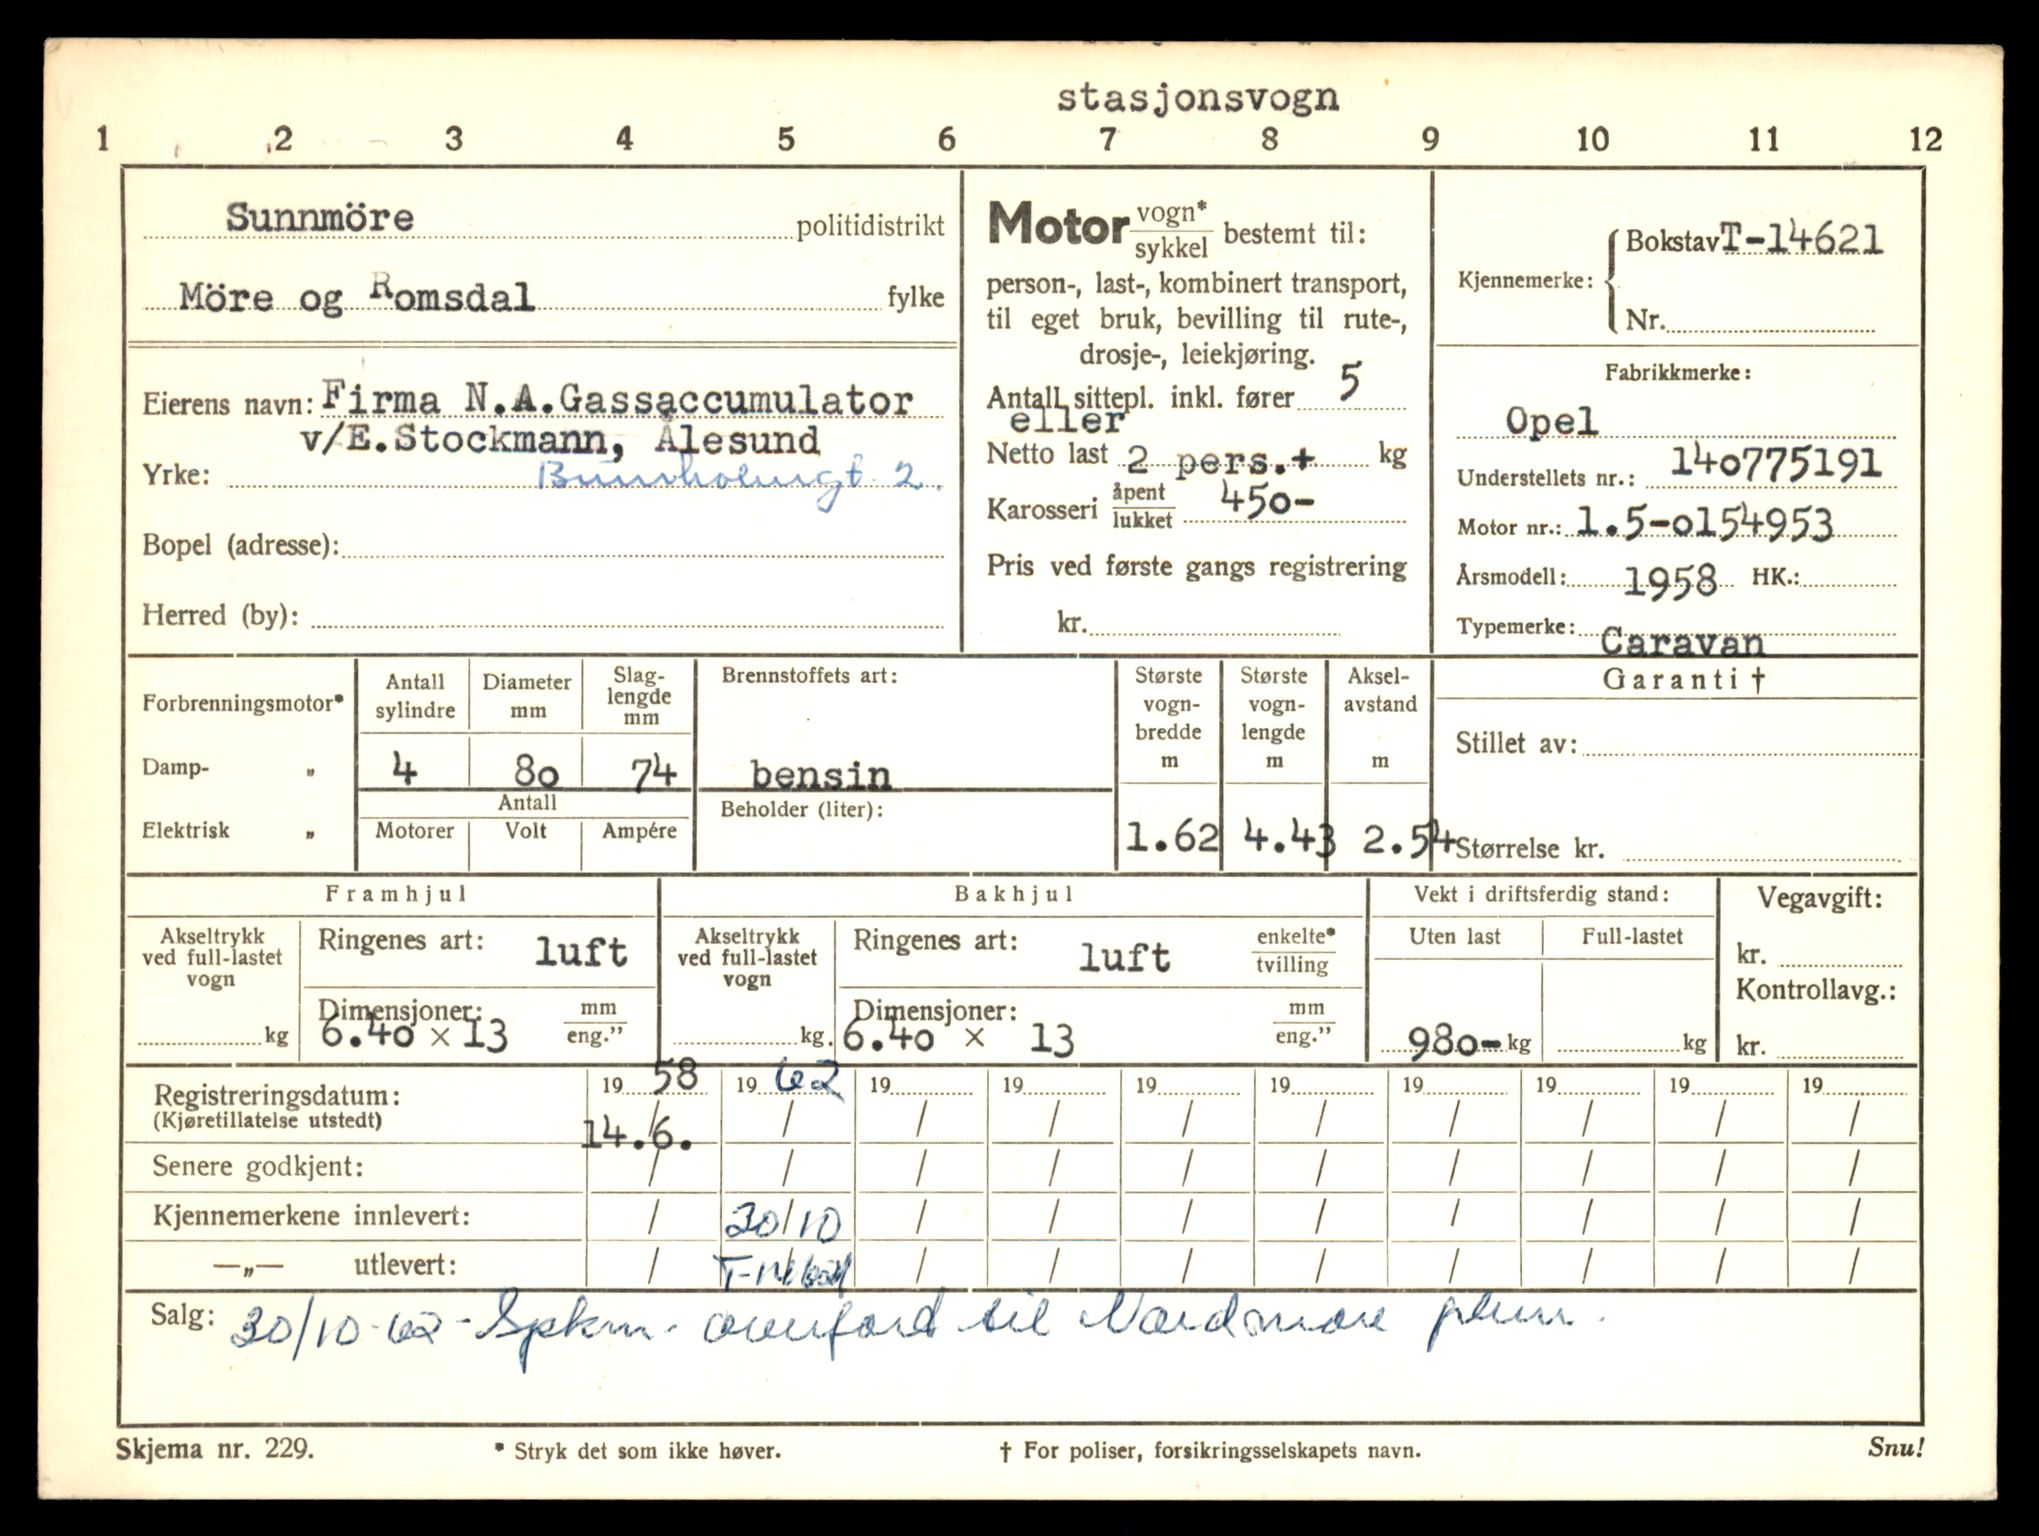 stasjonsvogn
1 2 3 4 5 6 7 8 9 10 11 12
Sunnmöre politidistrikt
Möre og Romsdal fylke
Eierens navn: Firma N.A.Gassaccumulator
v/E.Stockmann, Ålesund
Yrke: 2.
Bopel (adresse):
Herred (by):
Motor vogn* sykkel bestemt til:
person-, last-, kombinert transport,
til eget bruk, bevilling til rute-,
drosje-, leiekjøring.
Antall sittepl. inkl. fører 5
eller
Netto last 2 pers.+ kg
Karosseri åpent lukket 450-
Pris ved første gangs registrering
kr.
Kjennemerke: Bokstav T-14621
Nr.
Fabrikkmerke:
Opel
Understellets nr.: 140775191
Motor nr.: 1.5-0154953
Årsmodell: 1958 HK.:
Typemerke: Caravan
Forbrenningsmotor*
Damp- „
Elektrisk „
Antall sylindre
Diameter mm
Slag-
lengde
mm
4 80 74
Antall
Motorer Volt Ampére
Brennstoffets art:
bensin
Beholder (liter):
Største
vogn-
bredde
m
1.62
Største
vogn-
lengde
m
4.43
Aksel-
avstand
m
2.54
Garanti †
Stillet av:
Størrelse kr.
Framhjul
Akseltrykk
ved full-lastet
vogn
kg
Ringenes art: luft
Dimensjoner: mm eng.”
6.40 × 13
Bakhjul
Akseltrykk
ved full-lastet
vogn
kg.
Ringenes art: luft enkelte* tvilling
Dimensjoner: mm eng.”
6.40 × 13
Vekt i driftsferdig stand:
Uten last Full-lastet
980- kg kg
Vegavgift:
kr.
Kontrollavg.:
kr.
Registreringsdatum: 19 58 19 62 19 19 19 19 19 19 19 19
(Kjøretillatelse utstedt) 14.6. / / / / / / / / /
Senere godkjent: / / / / / / / / / /
Kjennemerkene innlevert: / 30/10 / / / / / / / /
—„— utlevert: / / / / / / / / /
Salg: 30/10-62 - Spkm. overført til Nordmøre
Skjema nr. 229. * Stryk det som ikke høver. † For poliser, forsikringsselskapets navn. Snu!